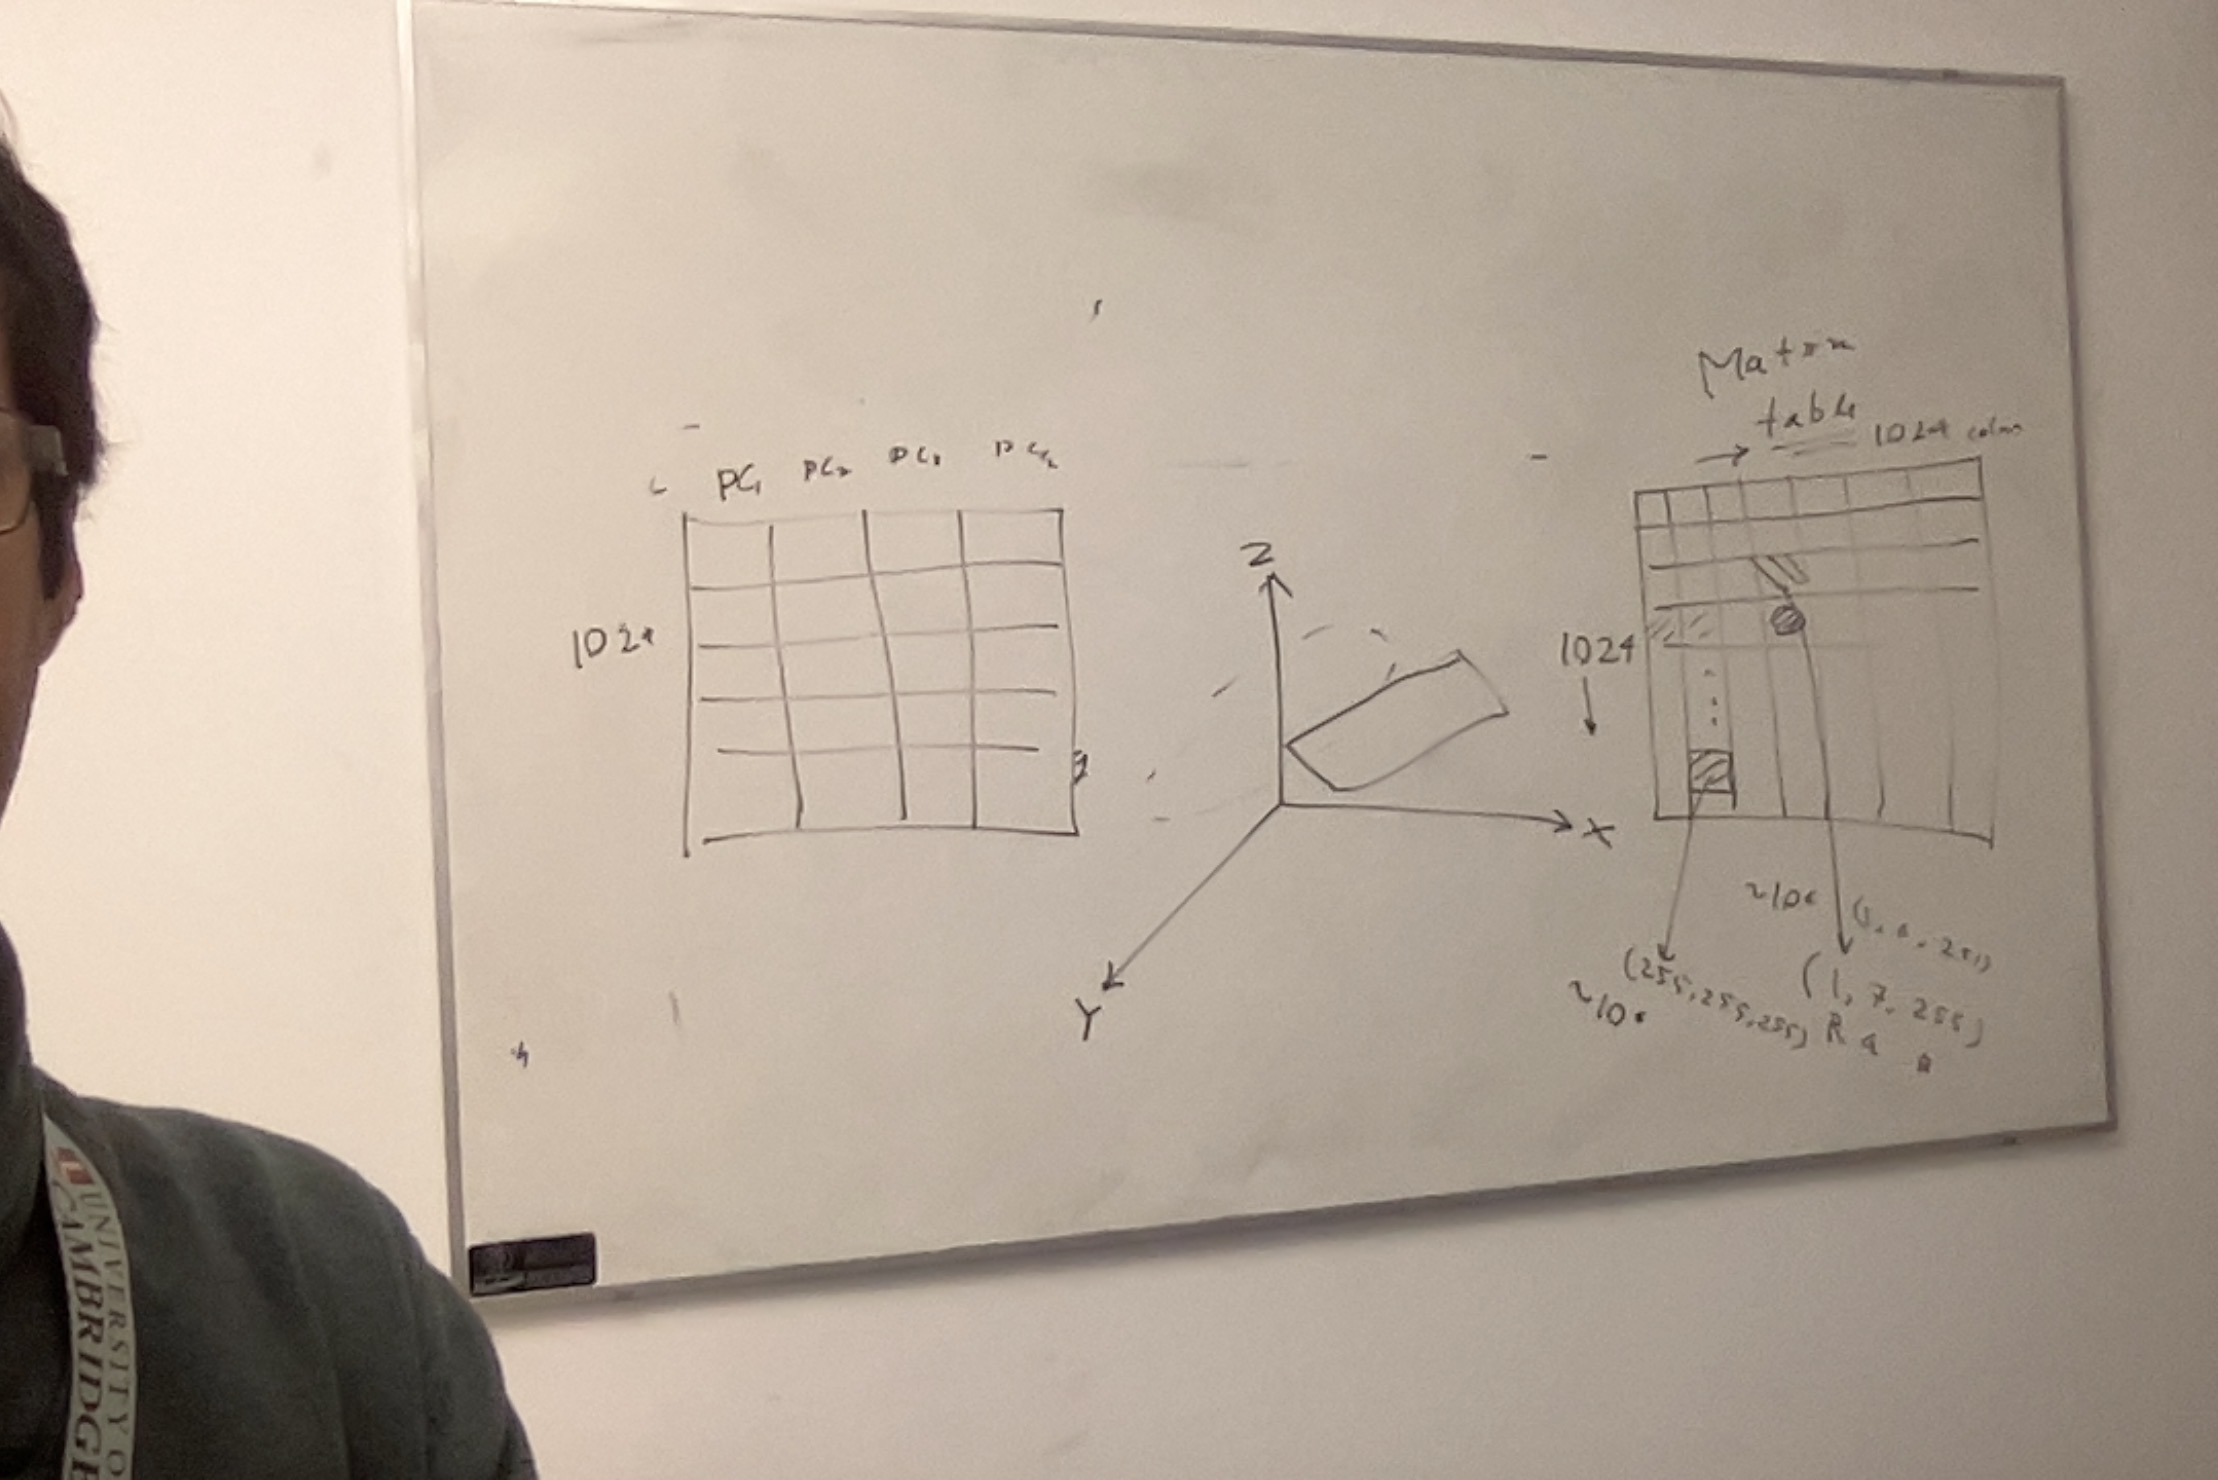 PC1 PC2 PC3
1024
Z
X
Y
Matrix
table
1024 colmn
1024
~10
(255,255,255)
~10
(1, 7, 255)
R G B
UNIVERSITY O
CAMBRIDGE